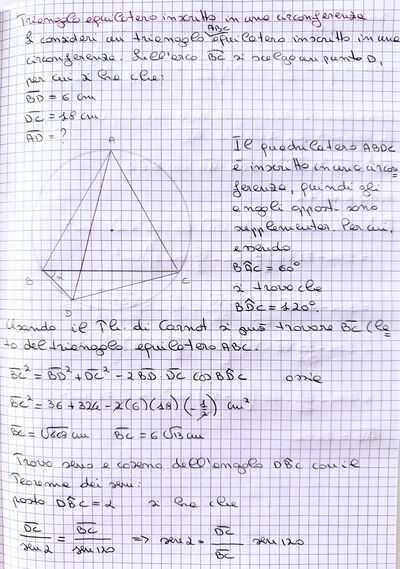 Triangolo equilatero inscritto in una circonferenza
Si consideri un triangolo ABC equilatero inscritto in una
circonferenza. Sull'arco BC si scelga un punto D,
per cui si ha che:
BD = 6 cm
DC = 18 cm
AD = ?
A
B
C
D
α
Il quadrilatero ABDC
è inscritto in una circon
ferenza, quindi gli
angoli opposti sono
supplementari. Per cui,
essendo
BÂC = 60°
si trova che
BD̂C = 120°.
Usando il Th. di Carnot si può trovare BC (la
to del triangolo equilatero ABC.
BC² = BD² + DC² - 2 BD DC cos BD̂C ossia
BC² = 36 + 324 - 2(6)(18)(-1/2) cm²
BC = √468 cm BC = 6√13 cm
Trovo seno e coseno dell'angolo DB̂C con il
Teorema dei seni:
posto DB̂C = α si ha che
DC/sen α = BC/sen 120 ⇒ sen α = DC/BC sen 120